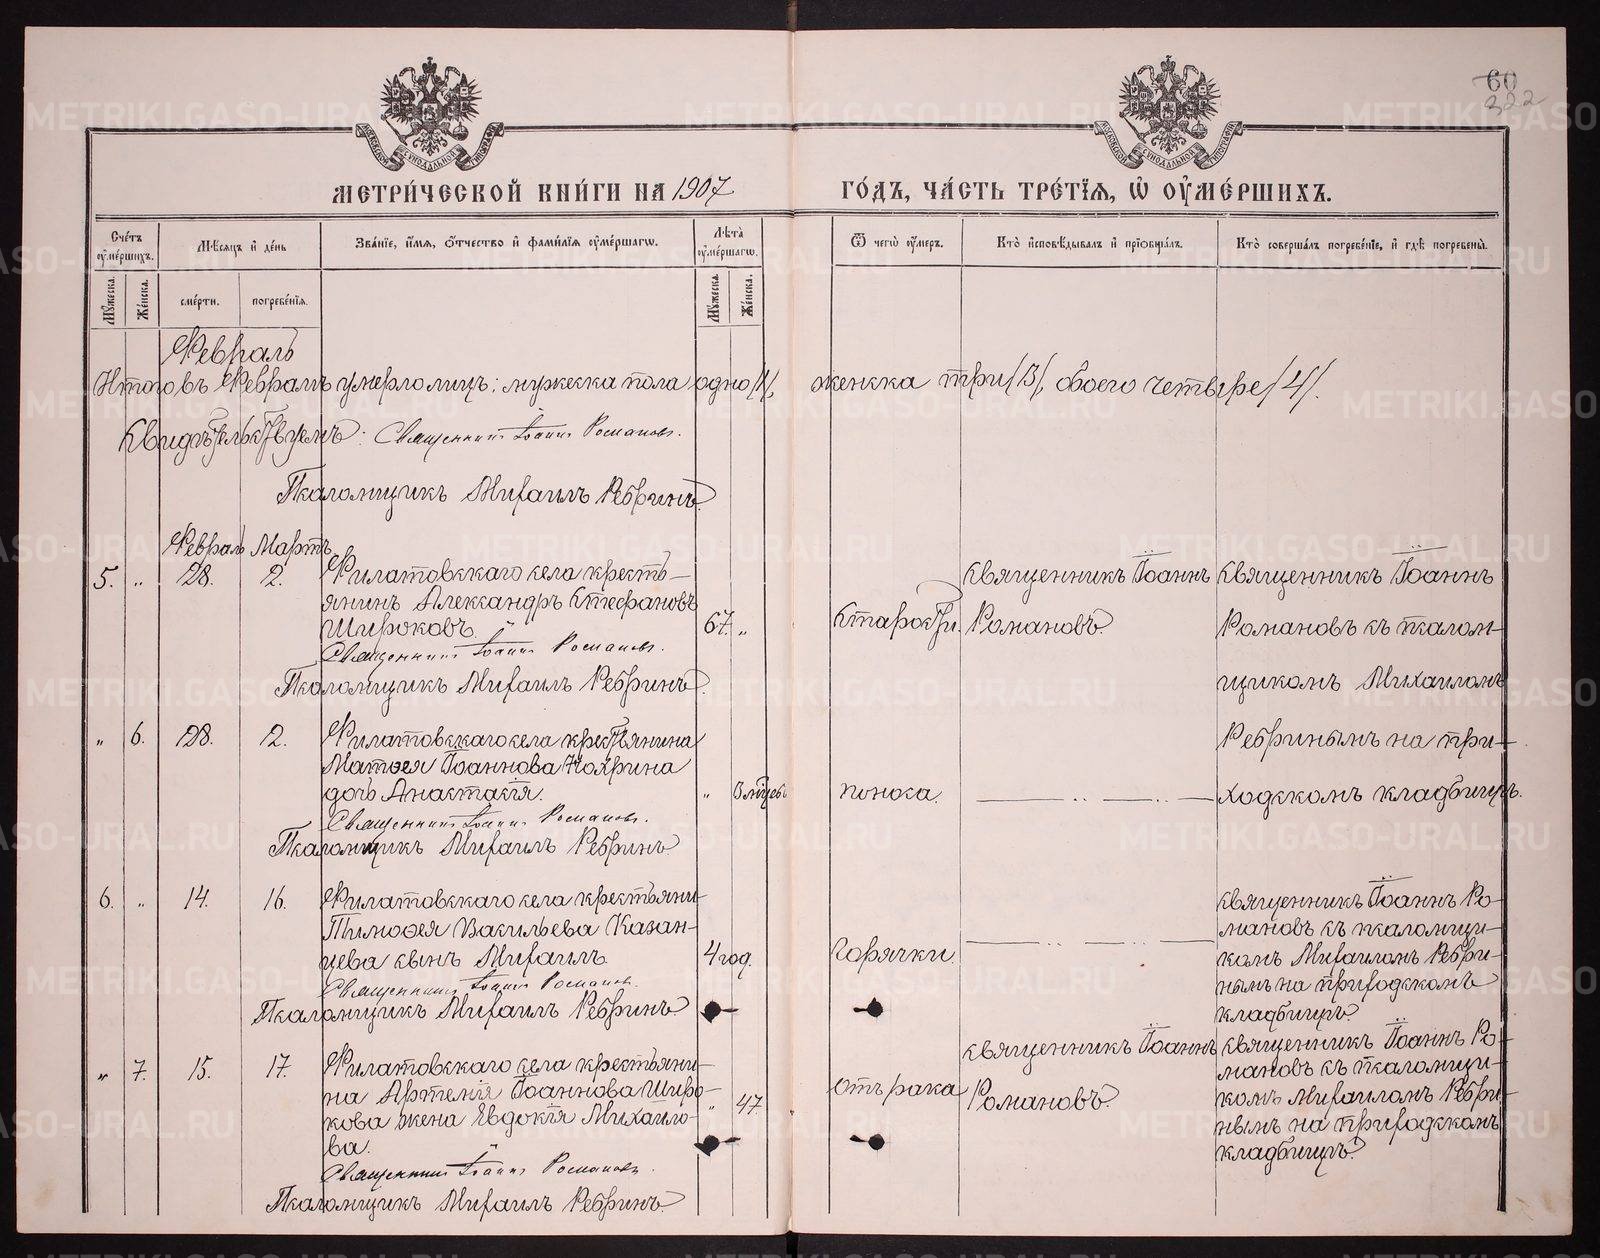 60
322
МЕТРИ́ЧЕСКОЙ КНИ́ГИ НА 1907 ГО́ДЪ, ЧА́СТЬ ТРЕ́ТІѦ, Ѡ҆ ОУ҆МЕ́РШИХЪ.
Сче́тъ оу҆ме́ршихъ.
Мꙋ́жеска.
Же́нска.
Мѣ́сѧцъ и҆ де́нь
сме́рти.
погребе́нїѧ.
Зва́нїе, и҆́мѧ, ѻ҆́тчество и҆ фами́лїѧ оу҆ме́ршагѡ.
Лѣ́та оу҆ме́ршагѡ.
Мꙋ́жеска.
Же́нска.
Ѿ чегѡ̀ оу҆́меръ.
Кто̀ и҆сповѣ́дывалъ и҆ прїѡбща́лъ.
Кто̀ соверша́лъ погребе́нїе, и҆ гдѣ̀ погребены̀.
Февраль
Итого въ Февралѣ умерло лицъ: мужеска пола одно /1/, женска три /3/, обоего четыре /4/.
Свидѣтельствуемъ: Священникъ Іоаннъ Романовъ.
Псаломщикъ Михаилъ Ребринъ.
Февраль Мартъ
5. „ 28. 2. Филатовскаго села кресть-
янинъ Александръ Стефановъ
Широковъ. 67. „
Священникъ Іоаннъ Романовъ.
Псаломщикъ Михаилъ Ребринъ.
Старости.
Священникъ Іоаннъ
Романовъ.
Священникъ Іоаннъ
Романовъ съ псалом-
щикомъ Михаиломъ
Ребринымъ на при-
ходскомъ кладбищѣ.
„ 6. 28. 2. Филатовскаго села крестьянина
Матѳея Іоаннова Кохрина
дочь Анастасія. „ 3 мѣсяцевъ
Священникъ Іоаннъ Романовъ.
Псаломщикъ Михаилъ Ребринъ.
поноса. — „ — „ —
6. „ 14. 16. Филатовскаго села крестьяни-
Тимоѳея Васильева Казан-
цева сынъ Михаилъ 4 год.
Священникъ Іоаннъ Романовъ.
Псаломщикъ Михаилъ Ребринъ.
Горячки. — „ — „ —
Священникъ Іоаннъ Ро-
мановъ съ псаломщи-
комъ Михаиломъ Ребри-
нымъ на приходскомъ
кладбищѣ.
„ 7. 15. 17. Филатовскаго села крестьяни-
на Артемія Іоаннова Широ-
кова жена Евдокія Михаило-
ва. „ 47
Священникъ Іоаннъ Романовъ.
Псаломщикъ Михаилъ Ребринъ.
Отъ рака
Священникъ Іоаннъ
Романовъ.
Священникъ Іоаннъ Ро-
мановъ съ псаломщи-
комъ Михаиломъ Ребри-
нымъ на приходскомъ
кладбищѣ.
METRIKI.GASO-URAL.RU